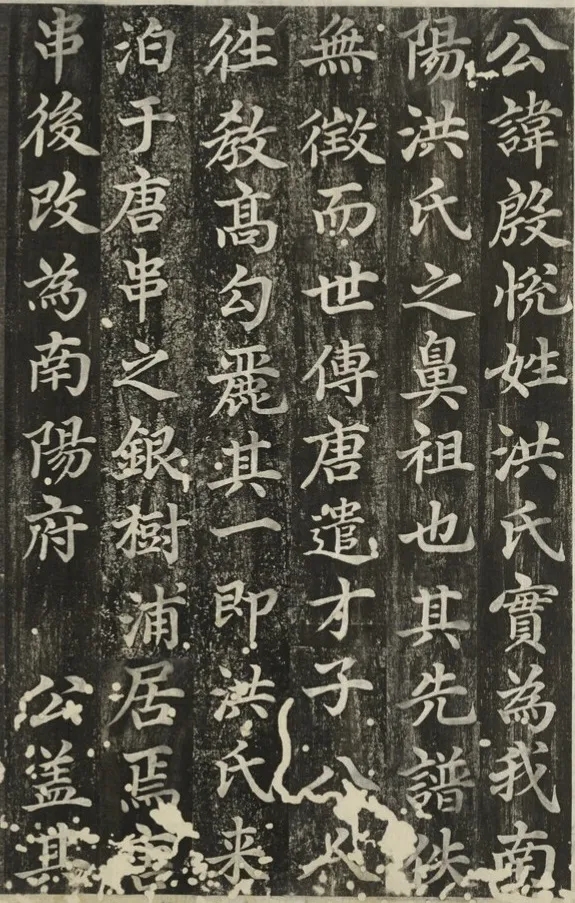 公諱殷悅姓洪氏實為我南
陽洪氏之鼻祖也其先譜佚
無徴而世傳唐遣才子八人
徃敎髙勾麗其一即洪氏来
泊于唐串之銀樹浦居焉唐
串後改為南陽府 公盖其